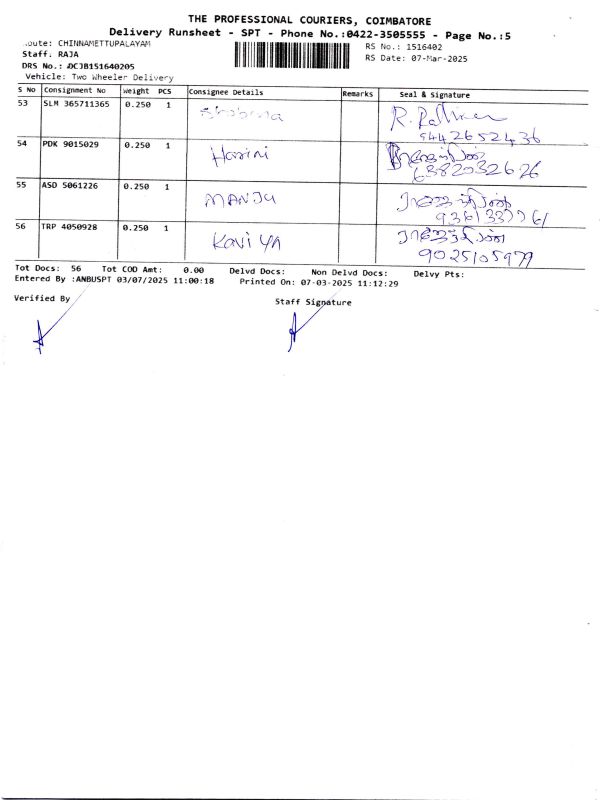 THE PROFESSIONAL COURIERS, COIMBATORE
Delivery Runsheet - SPT - Phone No.:0422-3505555 - Page No.:5
oute: CHINNAMETTUPALAYAM
RS No.: 1516402
Staff. RAJA
RS Date: 07-Mar-2025
DRS No.: DCJB151640205
Vehicle: Two Wheeler Delivery
S No Consignment No Weight PCS Consignee Details Remarks Seal & Signature
53 SLM 365711365 0.250 1 Shobana R.
9442652436
54 PDK 9015029 0.250 1 Harini
6382032626
55 ASD 5061226 0.250 1 MANJU
56 TRP 4050928 0.250 1 Kavi YA
9025105979
Tot Docs: 56 Tot COD Amt: 0.00 Delvd Docs: Non Delvd Docs: Delvy Pts:
Entered By :ANBUSPT 03/07/2025 11:00:18 Printed On: 07-03-2025 11:12:29
Verified By Staff Signature